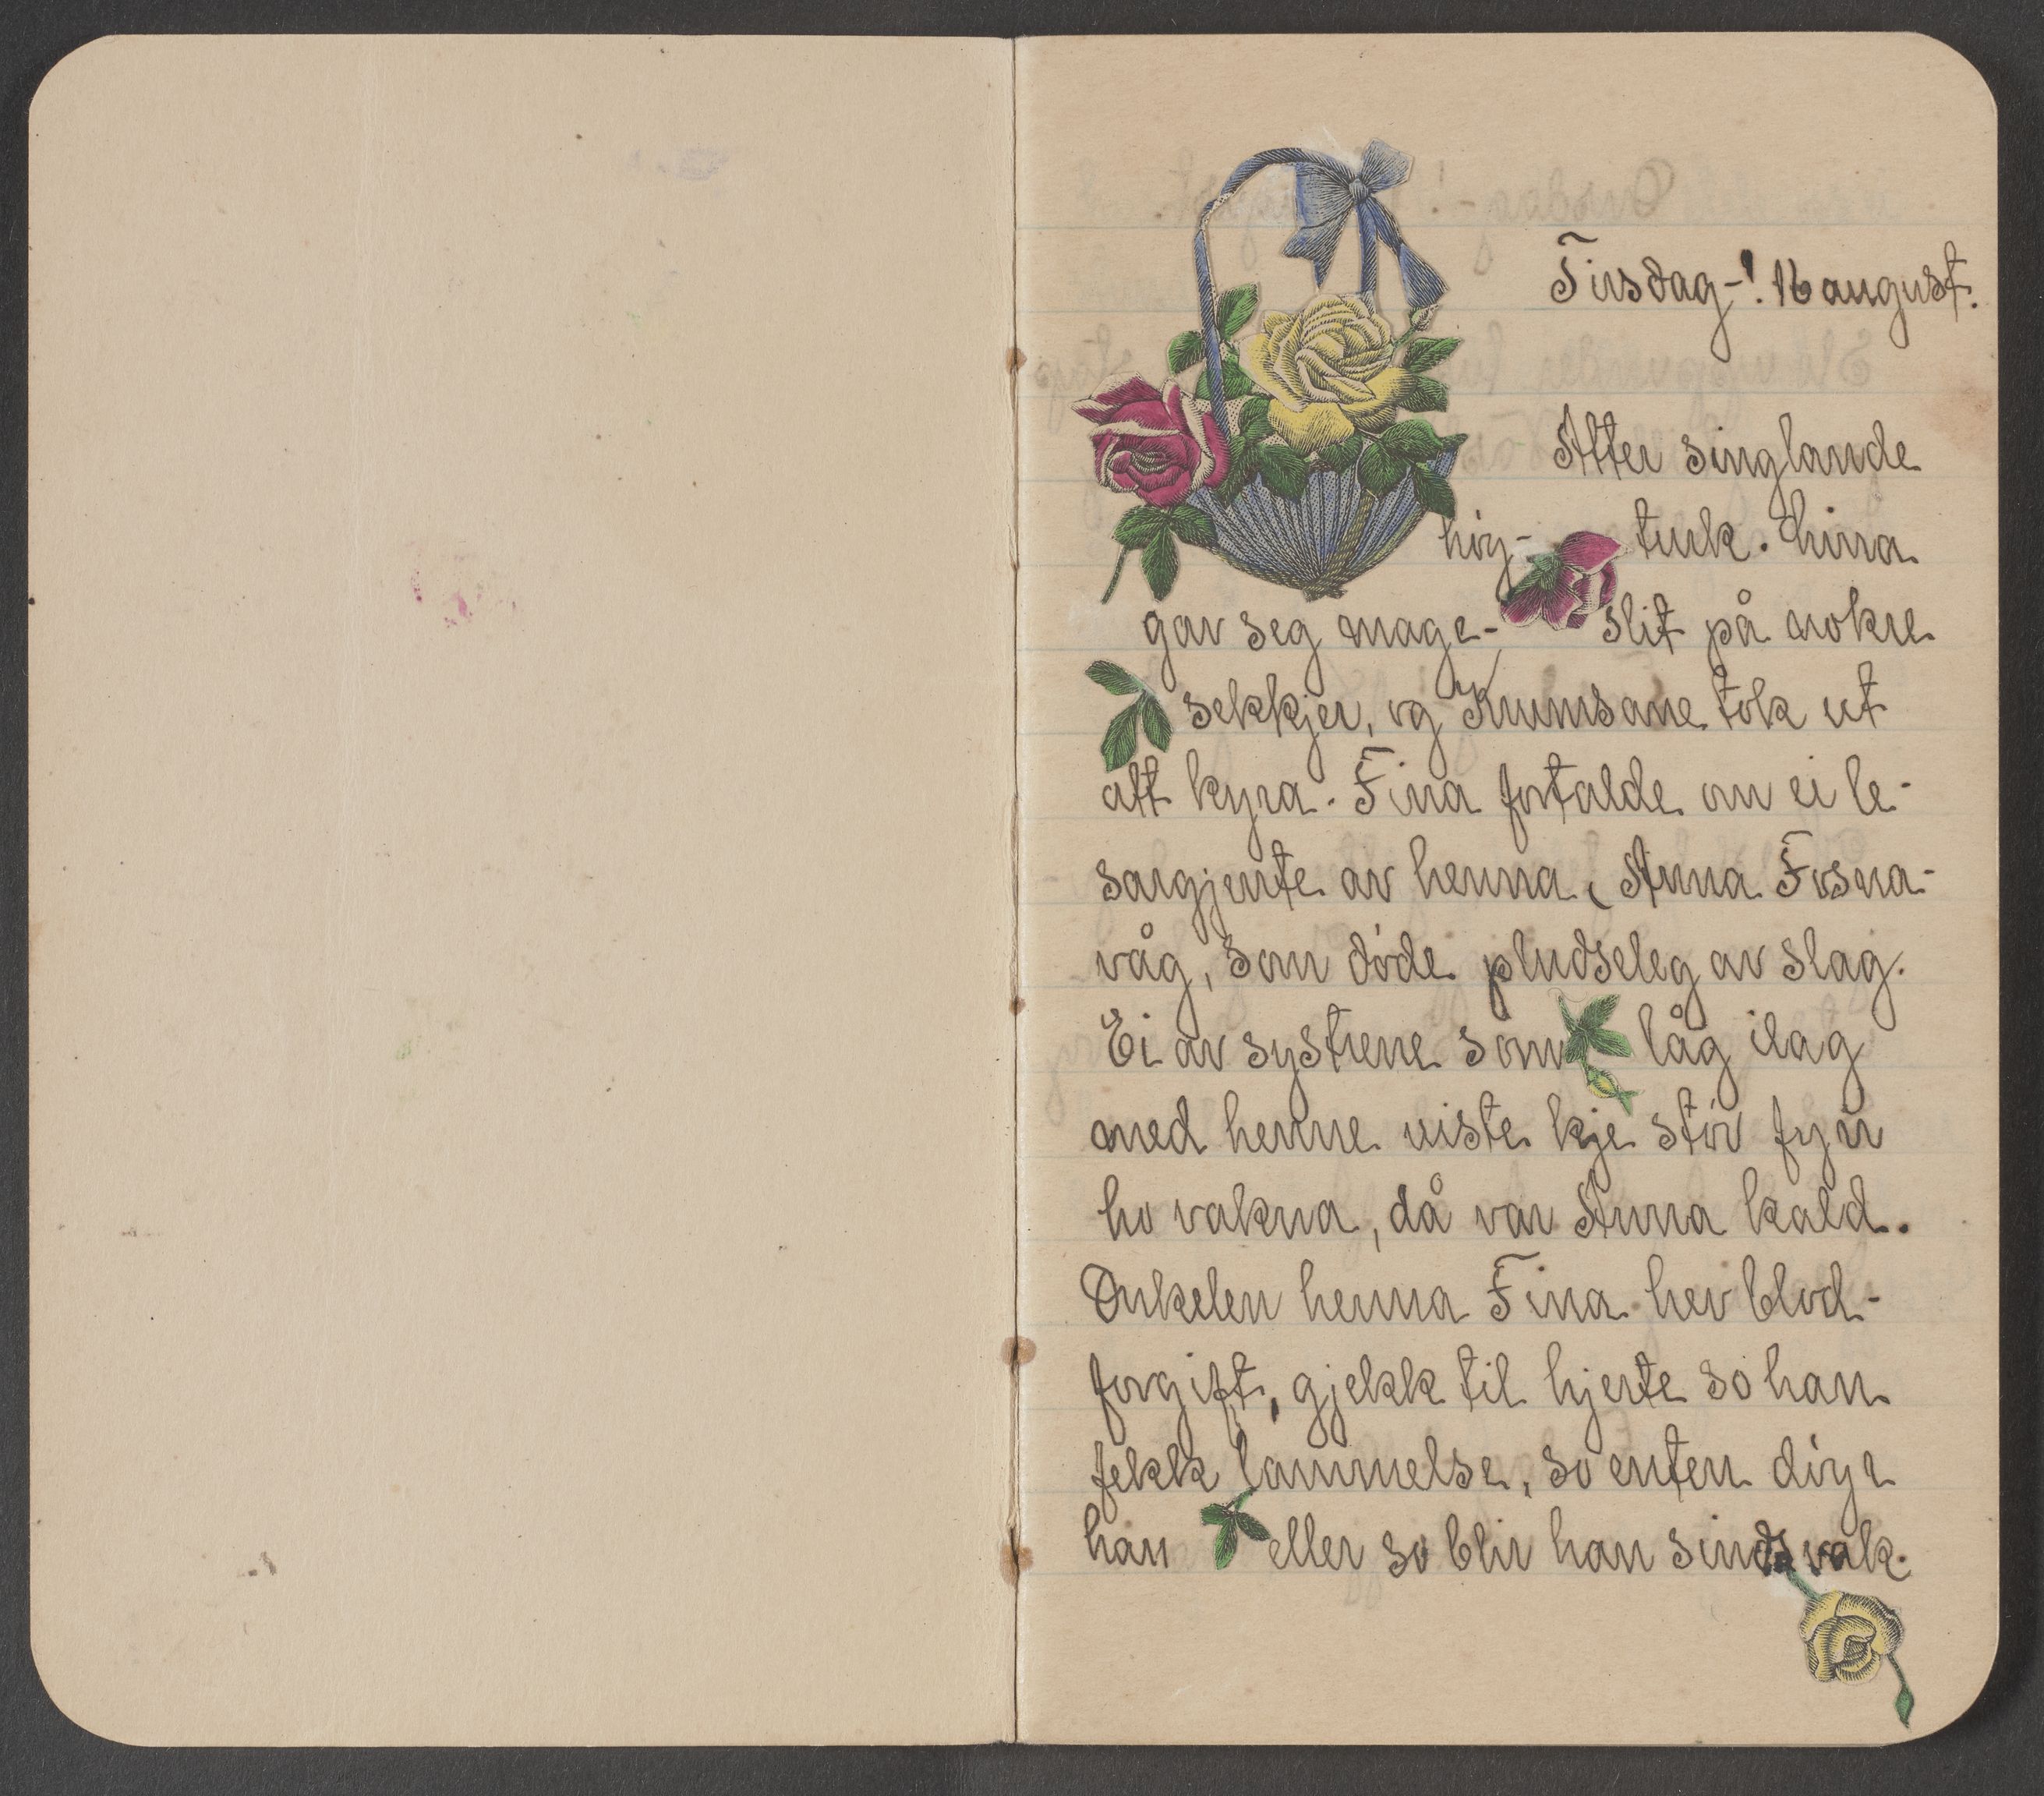 Tirsdag-! 16 august.
Atter singlande
høy- turk. Hina
gav seg mage- slit på nokre
sekkjer, og Krumsane tok ut
att kyra. Fina fortalde om ei le-
sargjente av henna, Anna Fosna-
våg, som døde pludseleg av slag.
Ei av systrene som låg ilag
med henne viste kje stór fyrr
ho vakna, då var Anna kald.
Onkelen henna Fina hev blod-
forgift, gjekk til hjerte so han
fekk lammelse, so enten døye
han eller so blir han sindsvak.